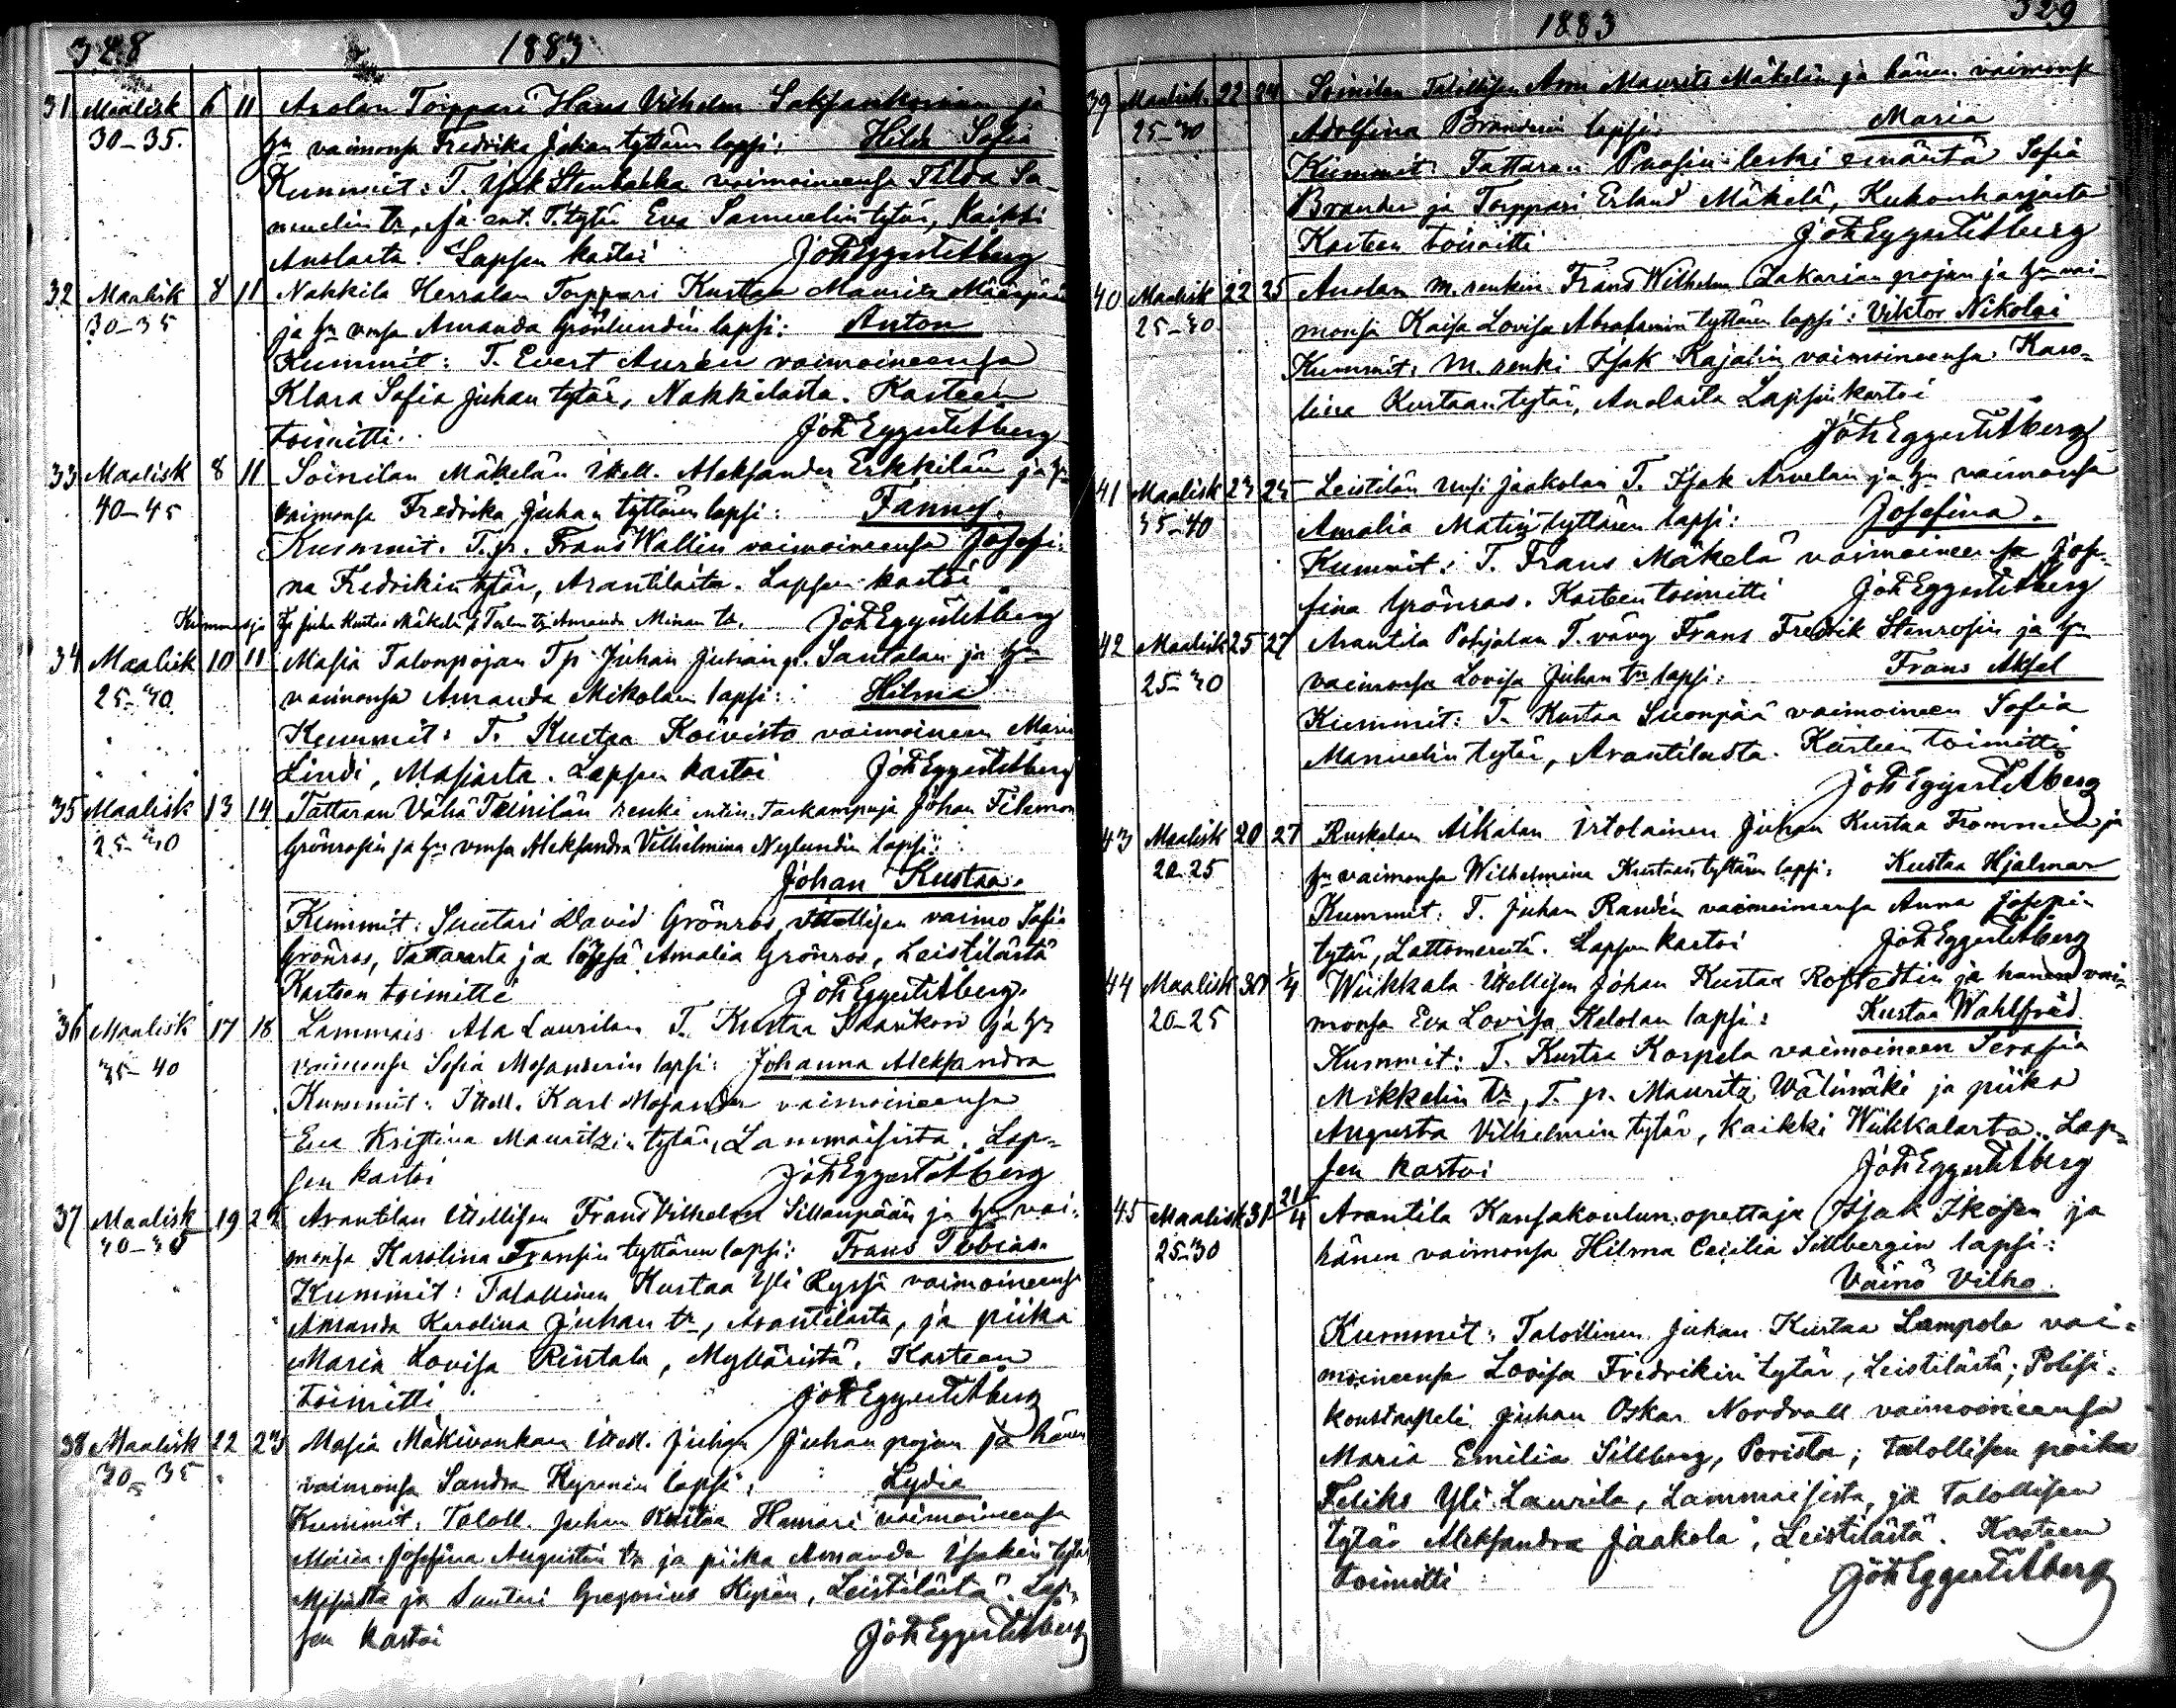 328 1883
31 Maalisk 6 11 Anolan Torppari Hans Vilhelm Saksankorvan ja
30–35. hn vaimonsa Fredrika Johan tyttären lapsi: Hilda Sofia
Kummit: T. Isak Stenbakka vaimoineensa Tilda Sa-
muelin tr, ja T. tytär Eva Samuelin tytär, Kaikki
Anolasta. Lapsen kastoi Joh Eggert Stberg
32 Maalisk 8 11 Nakkila Herralan Torppari Kustaa Maurits Mäenpään
30–35 ja hn vmsa Amanda Grönlundin lapsi: Anton
Kummit: T. Evert Aurén vaimoineensa
Klara Sofia Juhan tytär, Nakkilasta. Kasteen
toimitti. Joh Eggert Stberg
33 Maalisk 8 11 Soinilan Mäkelän Itsell. Aleksander Erkkilän ja hn
40–45 vaimonsa Fredrika Juhan tyttären lapsi: Fanny.
Kummit. T. p. Frans Wallin vaimoineensa Josefi-
na Fredrikin tytär, Arantilasta. Lapsen kastoi
Kustaa Mäkelä Amanda Joh Eggert Stberg
34 Maalisk 10 11 Masia Talonpojan Tp. Juhan Juhan p. Santalan ja hn
25–30 vaimonsa Amanda Mikolan lapsi: Hilma
Kummit: T. Kustaa Koivisto vaimoineen Maria
Lindi, Masiasta. Lapsen kastoi Joh Eggert Stberg
35 Maalisk 13 14 Tattaran Vähä Teinilän renki Johan Filemon
25–30 Grönrosin ja hn vmsa Aleksandra Vilhelmina Nylundin lapsi:
Johan Kustaa.
Kummit: Suutari David Grönros, Itsellisen vaimo Sofia
Grönros, Tattarasta ja Amalia Grönros, Leistilästä
Kasteen toimitti Joh Eggert Stberg.
36 Maalisk 17 18 Lammais Ala Laurilan T. Kustaa Saarikon ja hn
35–40 vaimonsa Sofia Mosanderin lapsi: Johanna Aleksandra
Kummit: Itsell. Karl Mosander vaimoineensa
Eva Kristina Mauritzin tytär, Lammaisista. Lap-
sen kastoi Joh Eggert Stberg
37 Maalisk 19 Arantilan Itsellisen Frans Vilhelm Sillanpään ja hn vai-
30–35 monsa Karolina Fransin tyttären lapsi: Frans Tobias.
Kummit: Talollinen Kustaa Yli Ryssä vaimoineensa
Amanda Karolina Juhan tr, Arantilasta, ja piika
Maria Lovisa Rintala, Mylläristä. Kasteen
toimitti Joh Eggert Stberg
38 Maalisk 22 23 Masia Mäkivonkan Itsell. Juhan Juhan pojan ja hänen
30–35 vaimonsa Sandra Kyrenin lapsi: Lydia
Kummit: Taloll. Juhan Kustaa Hamari vaimoineensa
Maria Josefina Augustin tr ja piika Amanda Isakin tytär
Masiasta ja Suutari Gregorius Kyrén, Leistilästä. Lap-
sen kastoi Joh Eggert Stberg
1883 329
39 Maalisk. 22 24 Soinilan Talollisen Maurits Mäkelän ja hänen vaimonsa
25–30 Adolfina Branderin lapsi. Maria
Kummit: Tattaran leski emäntä Sofia
Brander ja Torppari Erland Mäkelä, Kukonharjasta
Kasteen toimitti Joh Eggert Stberg
40 Maalisk 22 25 Anolan m. renkin Frans Wilhelm Zakarian pojan ja hn vai-
25–30 monsa Kaisa Lovisa Abrahamin tyttären lapsi: Viktor Nikolai
Kummit: M. renki Isak Kajalin vaimoineensa Karo-
lina Kustaan tytär, Anolasta Lapsen kastoi
Joh Eggert Stberg
41 Maalisk 23 25 Leistilän Uusi Jaakolan T. Isak Arvelan ja hn vaimonsa
35–40 Amalia Matin tyttären lapsi: Josefina.
Kummit: T. Frans Mäkelä vaimoineensa Jose-
fina Grönros. Kasteen toimitti Joh Eggert Stberg
42 Maalisk 25 27 Arantila Pohjalan T. vävy Frans Fredrik Stenrosin ja hn
25–30 vaimonsa Lovisa Juhan tr lapsi: Frans Aksel
Kummit: T. Kustaa Suonpää vaimoineen Sofia
Manuelin tytär, Arantilasta. Kasteen toimitti
Joh Eggert Stberg
43 Maalisk 20 27 Ruskalan Aikalan Irtolainen Juhan Kustaa ja
20–25 hn vaimonsa Wilhelmina Kustaan tyttären lapsi: Kustaa Hjalmar
Kummit: T. Juhan Randén vaimoineensa Anna Josepin
tytär, Lattomereltä. Lapsen kastoi Joh Eggert Stberg
44 Maalisk 30 1/4 Wiikkala Itsellisen Johan Kustaa Rostedtin ja hänen vai-
20–25 monsa Eva Lovisa Kelolan lapsi: Kustaa Wahlfrid
Kummit: T. Kustaa Korpela vaimoineen Serafia
Mikkelin tr, T. p. Mauritz Wälimäki ja piika
Augusta Vilhelmin tytär, Kaikki Wiikkalasta. Lap-
sen kastoi Joh Eggert Stberg
45 Maalisk 31 21/4 Arantila Kansakoulun opettaja Isak Ikosen ja
25–30 hänen vaimonsa Hilma Cecilia Sillbergin lapsi:
Väinö Vilho.
Kummit: Talollinen Juhan Kustaa Lampola vai-
moineensa Lovisa Fredrikin tytär, Leistilästä; Polisi-
konstapeli Juhan Oskar Nordvall vaimoineensa
Maria Emilia Sillberg, Porista; talollisen poika
Feliks Yli Laurila, Lammaisista, ja talollisen
tytär Aleksandra Jaakola, Leistilästä. Kasteen
toimitti Joh Eggert Stberg